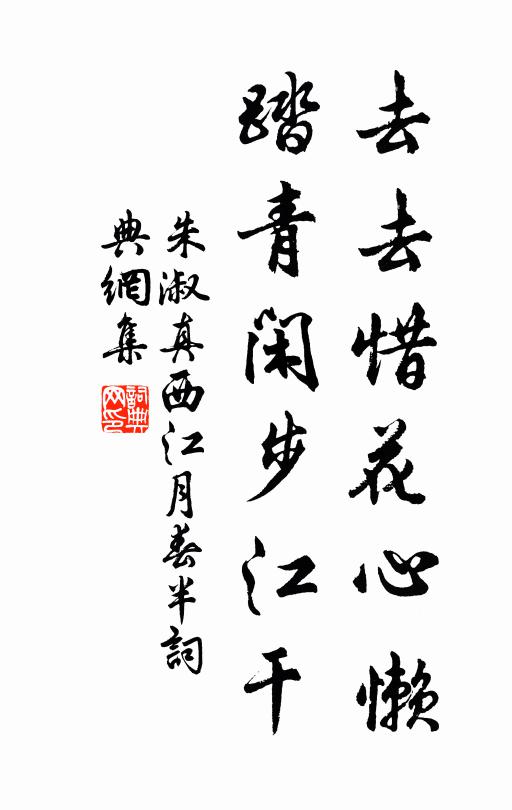 去去惜花心懶
踏青閑步江干
朱淑真西江月春半詞
典網集
詞典網印